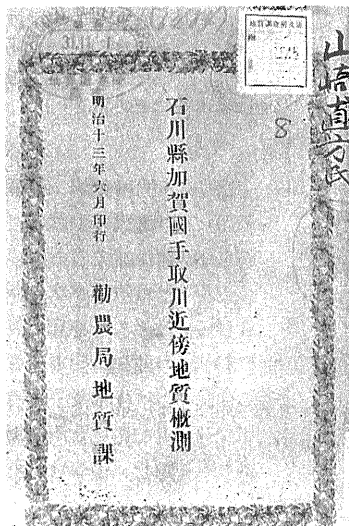 山崎直方氏
8
石川縣加賀國手取川近傍地質概測
明治十三年六月印行
勸農局地質課